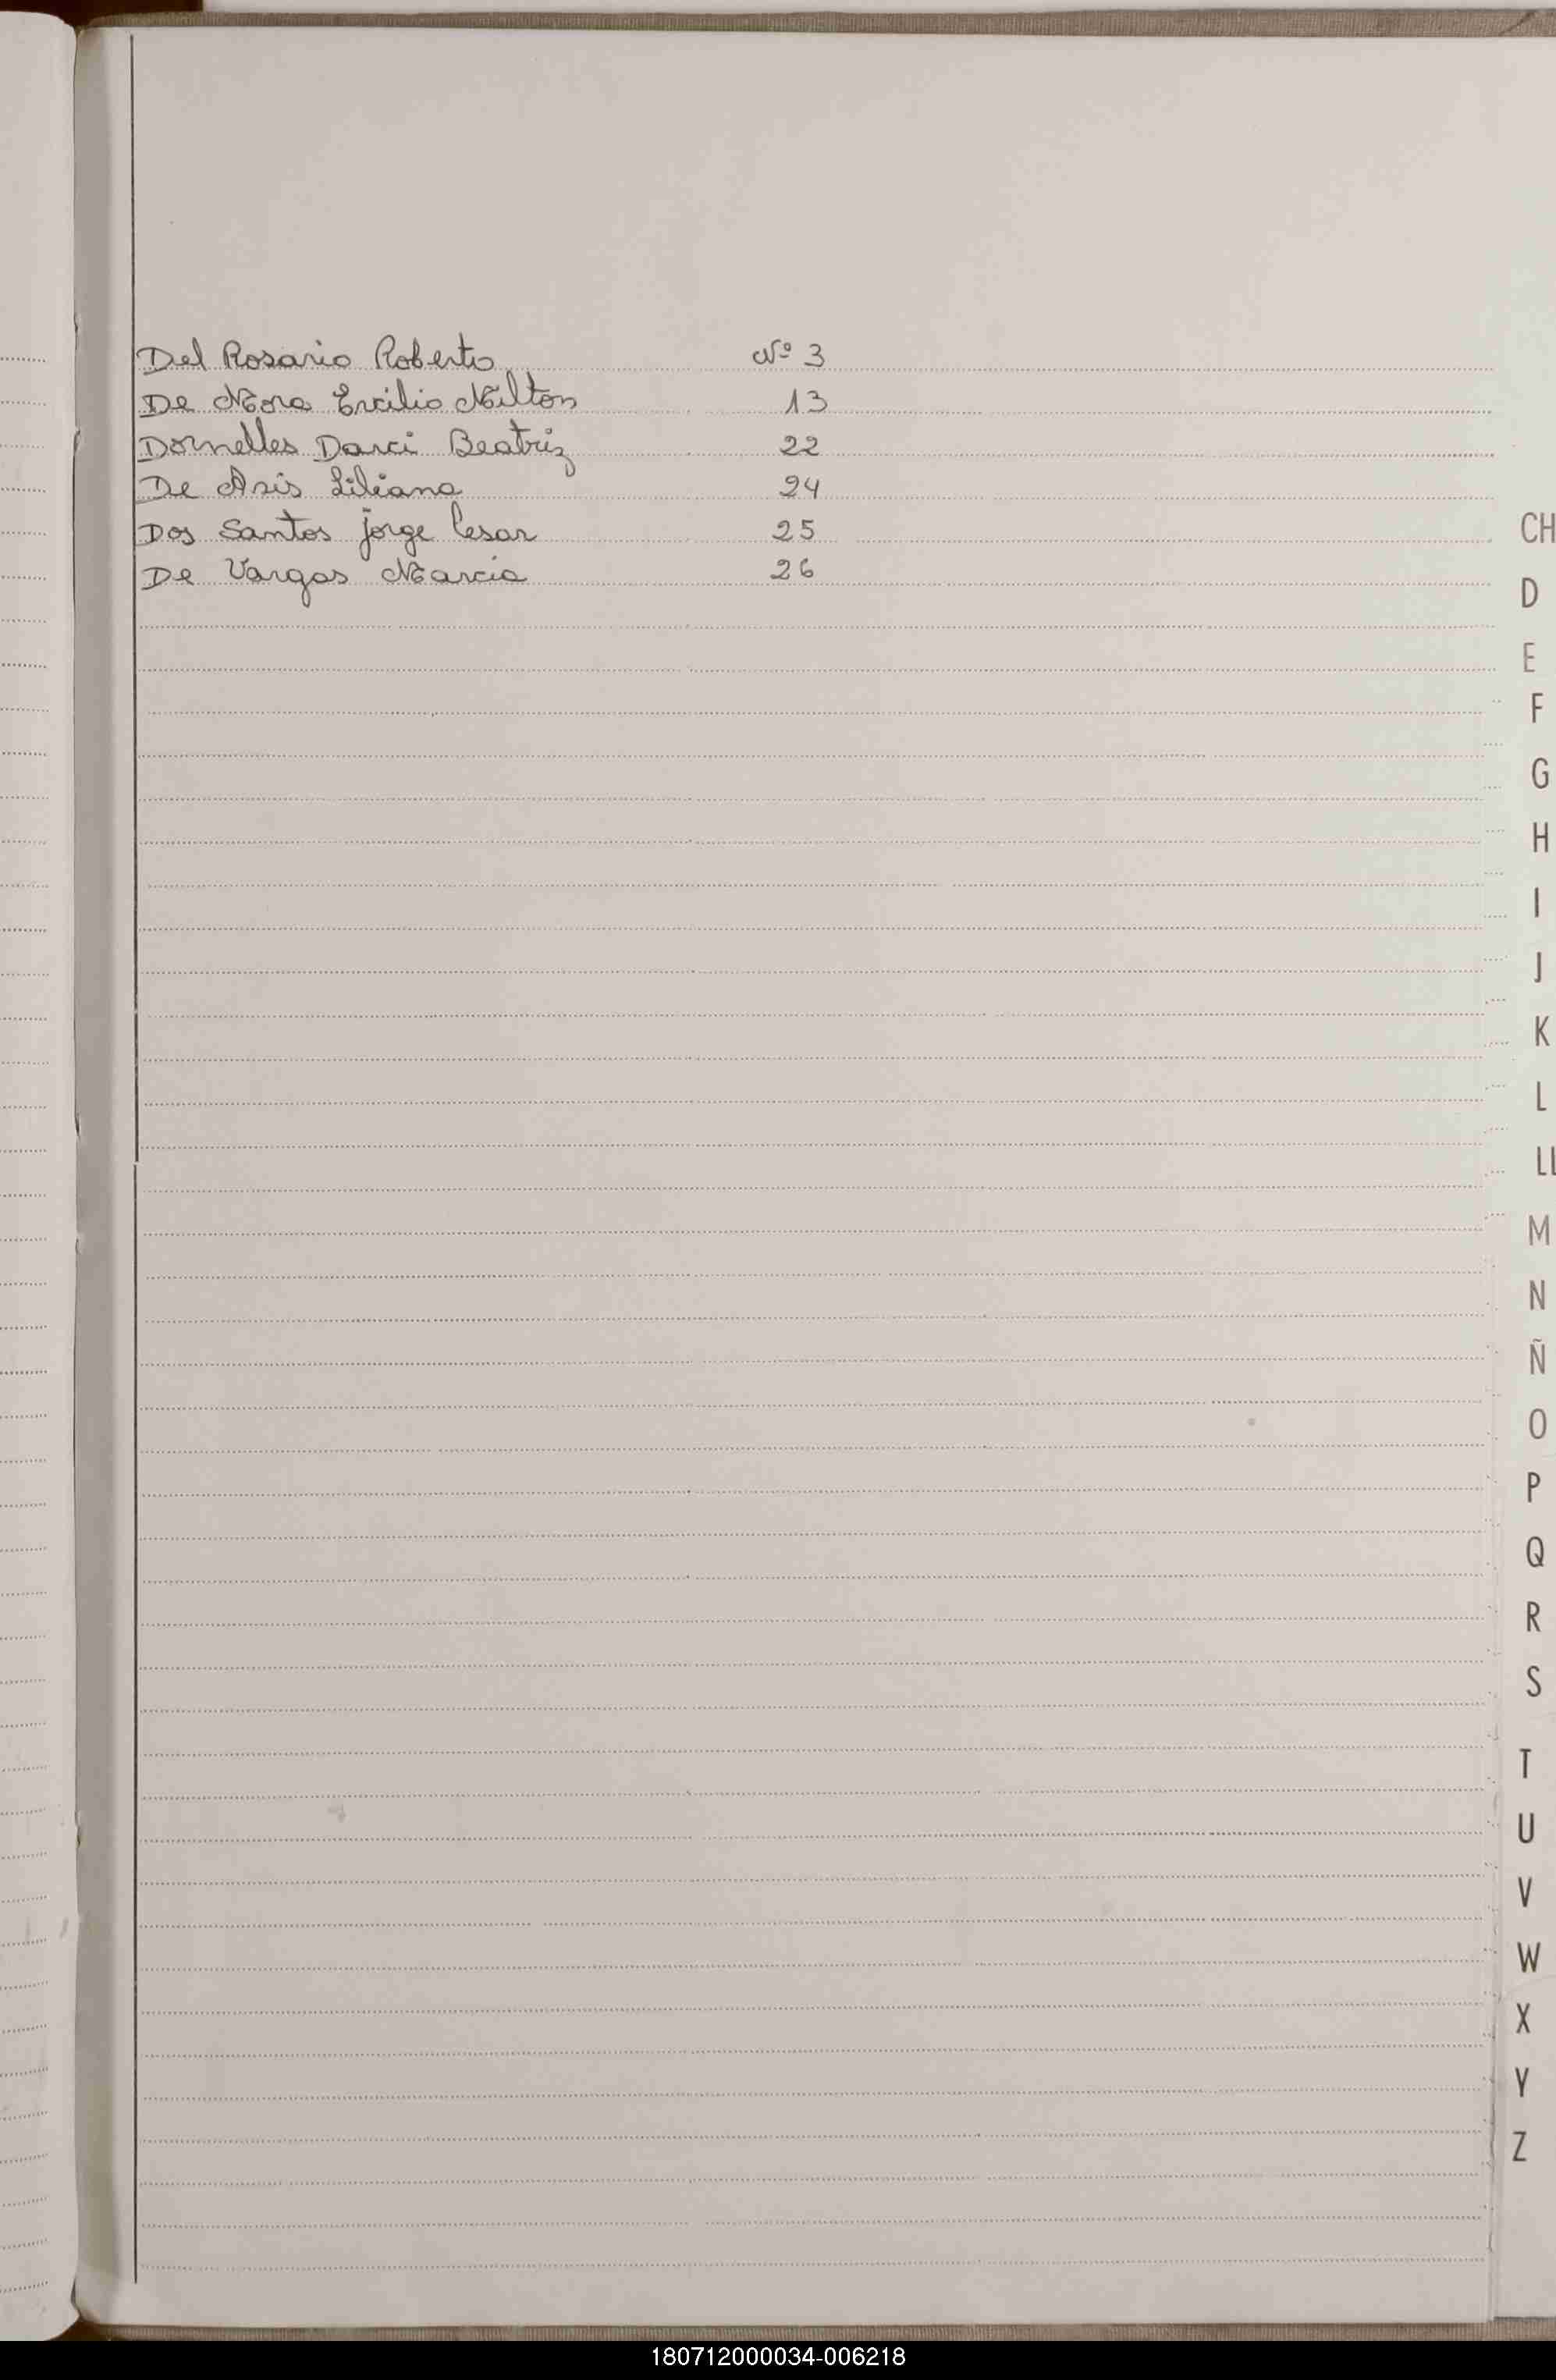 Del Rosario Roberto Nº 3
De Mora Ercilio Milton 13
Dornelles Darci Beatriz 22
De Asis Liliana 24
Dos Santos jorge Cesar 25
De Vargas Marcia 26
CH
D
E
F
G
H
I
J
K
L
LL
M
N
Ñ
O
P
Q
R
S
T
U
V
W
X
Y
Z
180712000034-006218